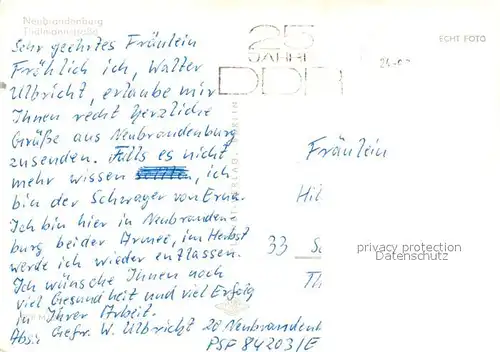 Neubrandenburg
Thälmannstraße
Sehr geehrtes Fräulein
Fröhlich ich, Walter
Ulbricht, erlaube mir
Ihnen recht herzliche
Grüße aus Neubrandenburg
zusenden. Falls es nicht
mehr wissen, ich
bin der Schwager von Erna.
Ich bin hier in Neubranden
burg bei der Armee, im Herbst
werde ich wieder entlassen.
Ich wünsche Ihnen noch
viel Gesundheit und viel Erfolg
in Ihrer Arbeit.
Abs: Gefr. W. Ulbricht 20 Neubrandenb
PSF 84203/E
25
JAHRE
DDR
ECHT FOTO
Fräulein
Hil
33
Th
privacy protection
Datenschutz